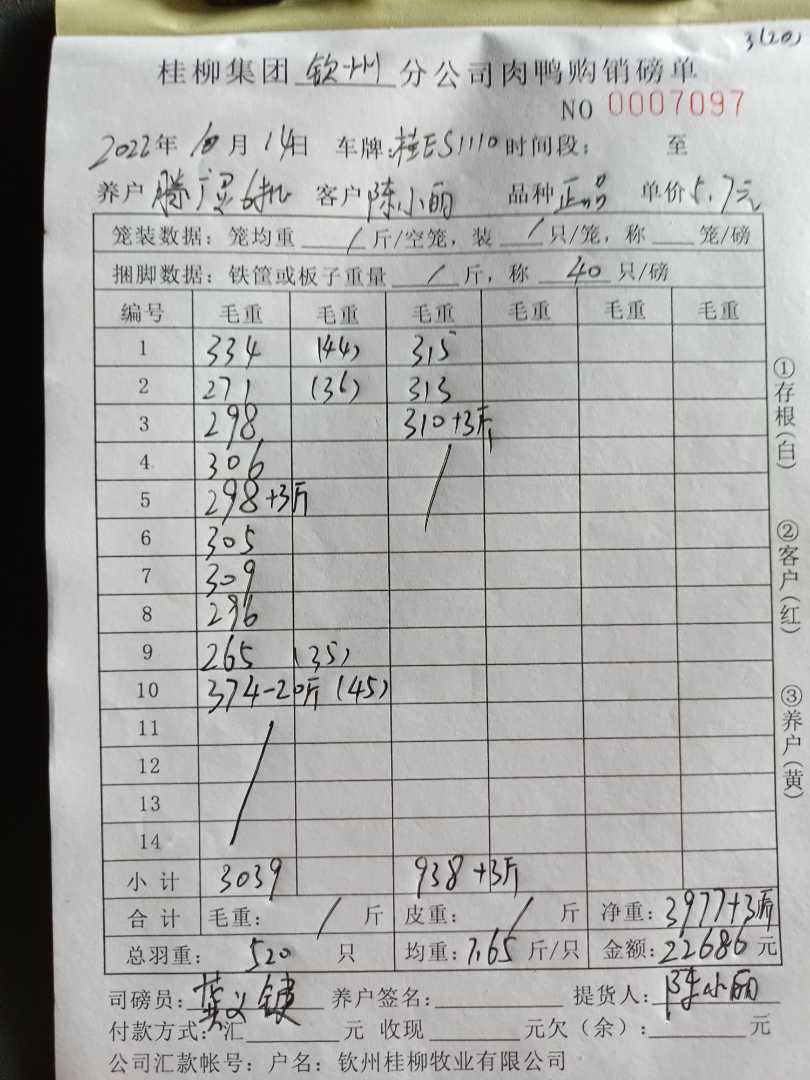 3(20)
桂柳集团 钦州 分公司肉鸭购销磅单
NO 0007097
2022年 10月 14日 车牌:桂ES1110 时间段: 至
养户 客户 陈小丽 品种 正品 单价5.7元
笼装数据: 笼均重 / 斤/空笼, 装 / 只/笼, 称 笼/磅
捆脚数据: 铁筐或板子重量 / 斤, 称 40 只/磅
编号 毛重 毛重 毛重 毛重 毛重 毛重
1 334 (44) 315
2 271 (36) 313
3 298 310+3斤
4 306 /
5 298+3斤
6 305
7 309
8 296
9 265 (35)
10 374-20斤 (45)
11 /
12
13
14
小计 3039 938+3斤
合计 毛重: / 斤 皮重: / 斤 净重: 3977+3斤
总羽重: 520 只 均重: 7.65 斤/只 金额: 22686 元
司磅员: 养户签名: 提货人: 陈小丽
付款方式: 汇 元 收现 元欠(余): 元
公司汇款帐号: 户名: 钦州桂柳牧业有限公司
①存根(白)
②客户(红)
③养户(黄)